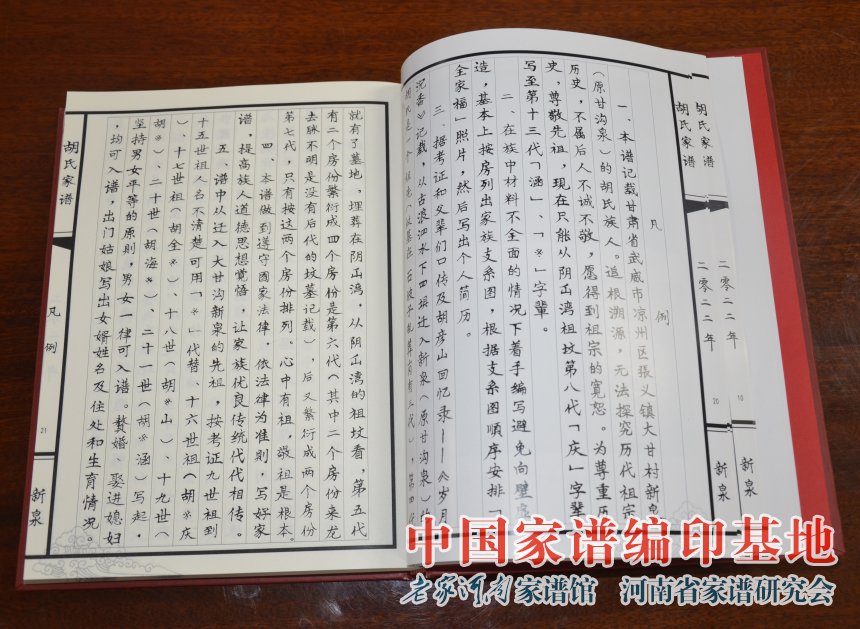 胡氏家谱
二〇二二年
10
新泉
胡氏家谱
二〇二二年
20
凡 例
一、本谱记载甘肃省武威市凉州区张义镇大甘村新泉
（原甘沟泉）的胡氏族人。追根溯源，无法探究历代祖宗
历史，不属后人不诚不敬，愿得到祖宗的宽恕。为尊重历
史，尊敬先祖，现在只能从阴屲湾祖坟第八代「庆」字辈
写至第十三代「涵」、「※」字辈。
二、在族中材料不全面的情况下着手编写避免向壁虚
造，基本上按房列出家族支系图，根据支系图顺序安排「
全家福」照片，然后写出个人简历。
三、据考证和父辈们口传及胡彦山回忆录——《岁月
沉香》记载，从古浪泗水下四坝迁入新泉（原甘沟泉）的
就有了墓地，埋葬在阴屲湾，从阴屲湾的祖坟看，第五代
有二个房份繁衍成四个房份是第六代（其中二个房份来龙
去脉不明是没有后代的坟墓记载），后又繁衍成两个房份
第七代，只有按这两个房份排列。心中有祖，敬祖是根本。
四、本谱做到遵守国家法律，依法律为准则，写好家
谱，提高族人道德思想觉悟，让家族优良传统代代相传。
五、谱中从迁入大甘沟新泉的先祖，按考证九世祖到
十五世祖人名不清楚可用「※」代替。十六世祖（胡※庆
）、十七世祖（胡全※）、十八世（胡※山）、十九世（
胡※）、二十世（胡海※）、二十一世（胡※涵）写起，
坚持男女平等的原则，男女一律可入谱。赘婿、娶进媳妇
，均可入谱，出门姑娘写出女婿姓名及住处和生育情况。
胡氏家谱
凡 例
21
新泉
中国家谱编印基地
老家河南家谱馆 河南省家谱研究会